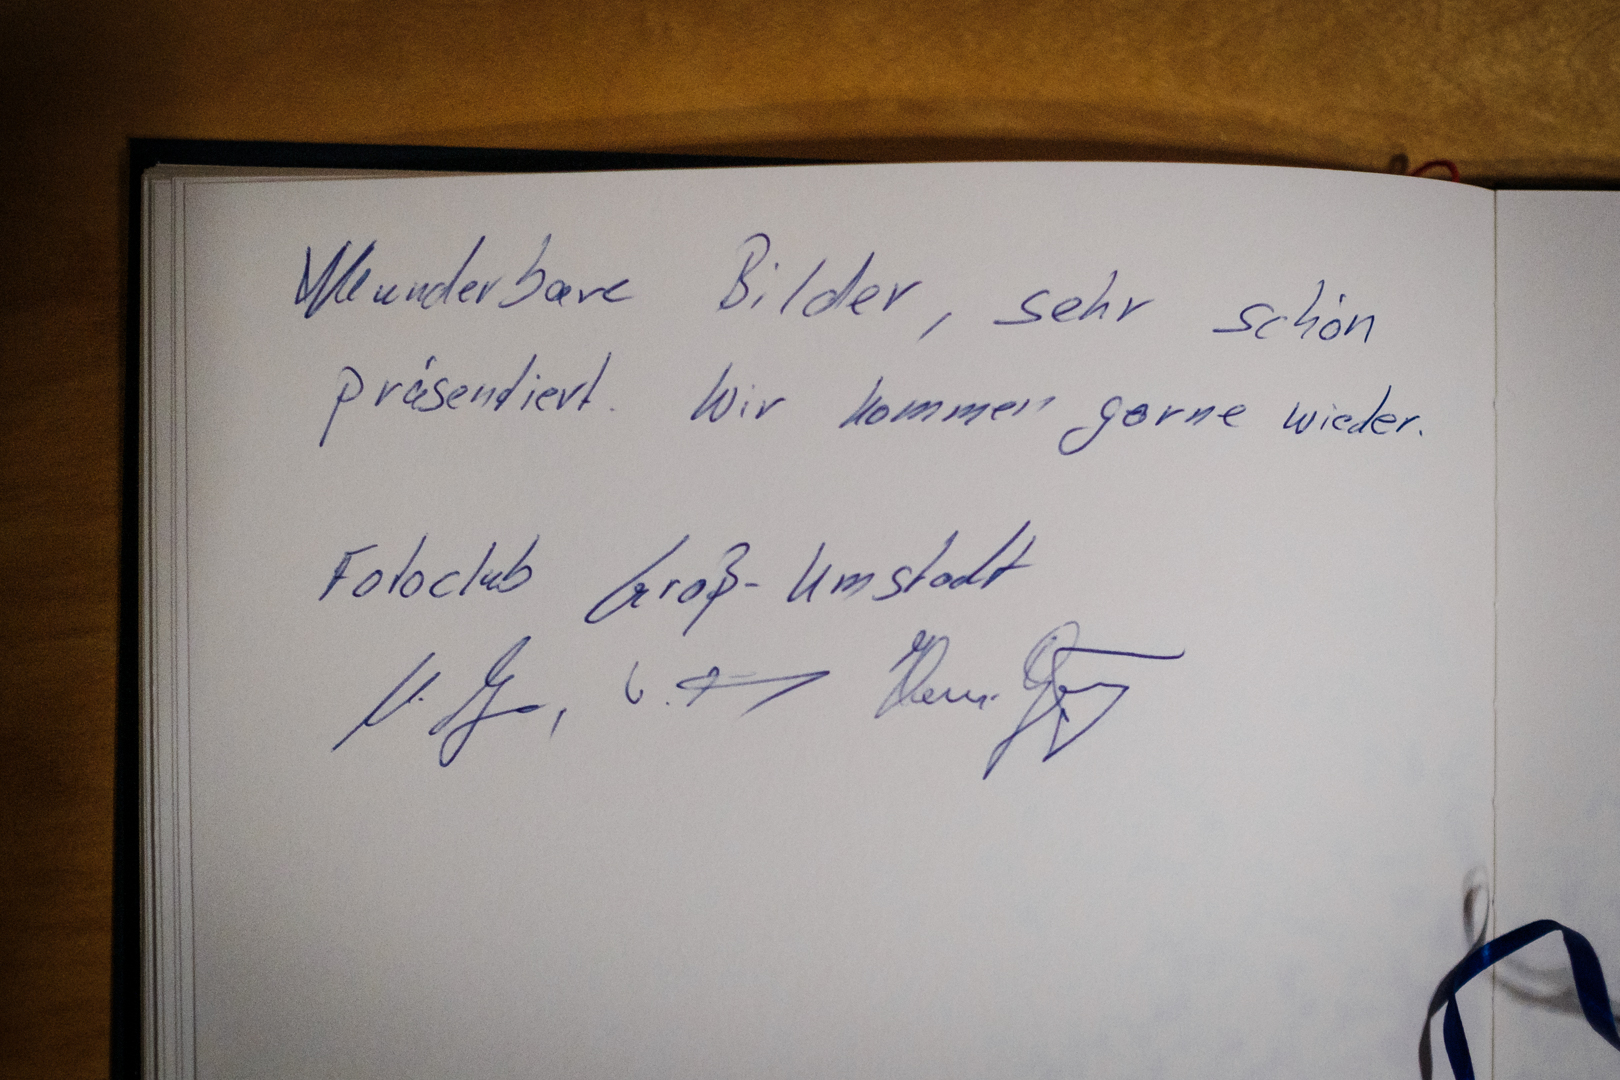 Wunderbare Bilder, sehr schön
präsendiert. Wir kommen gerne wieder.
Fotoclub Groß-Umstadt